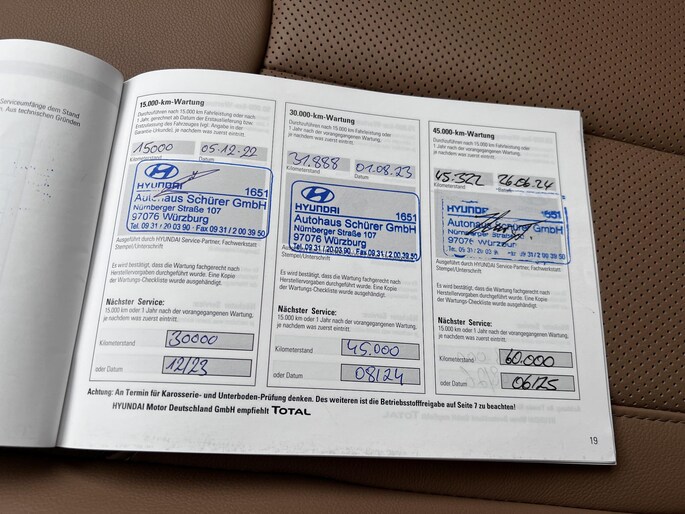 Serviceumfänge dem Stand
Aus technischen Gründen
15.000-km-Wartung
Durchzuführen nach 15.000 km Fahrleistung oder nach
1 Jahr, gerechnet ab Datum der Erstauslieferung bzw.
Erstzulassung des Fahrzeuges (vgl. Angabe in der
Garantie-Urkunde), je nachdem was zuerst eintritt.
15000 05.12.22
Kilometerstand Datum
HYUNDAI 1651
Autohaus Schürer GmbH
Nürnberger Straße 107
97076 Würzburg
Tel. 09 31 / 20 03 90 · Fax 09 31 / 2 00 39 50
Ausgeführt durch HYUNDAI Service-Partner, Fachwerkstatt
Stempel/Unterschrift
Es wird bestätigt, dass die Wartung fachgerecht nach
Herstellervorgaben durchgeführt wurde. Eine Kopie
der Wartungs-Checkliste wurde ausgehändigt.
Nächster Service:
15.000 km oder 1 Jahr nach der vorangegangenen Wartung,
je nachdem was zuerst eintritt.
Kilometerstand 30000
oder Datum 12/23
30.000-km-Wartung
Durchzuführen nach 15.000 km Fahrleistung oder
1 Jahr nach der vorangegangenen Wartung,
je nachdem was zuerst eintritt.
31.888 01.08.23
Kilometerstand Datum
HYUNDAI 1651
Autohaus Schürer GmbH
Nürnberger Straße 107
97076 Würzburg
Tel. 09 31 / 20 03 90 · Fax 09 31 / 2 00 39 50
Ausgeführt durch HYUNDAI Service-Partner, Fachwerkstatt
Stempel/Unterschrift
Es wird bestätigt, dass die Wartung fachgerecht nach
Herstellervorgaben durchgeführt wurde. Eine Kopie
der Wartungs-Checkliste wurde ausgehändigt.
Nächster Service:
15.000 km oder 1 Jahr nach der vorangegangenen Wartung,
je nachdem was zuerst eintritt.
Kilometerstand 45.000
oder Datum 08/24
45.000-km-Wartung
Durchzuführen nach 15.000 km Fahrleistung oder
1 Jahr nach der vorangegangenen Wartung,
je nachdem was zuerst eintritt.
45.322 26.06.24
Kilometerstand Datum
HYUNDAI 1651
Autohaus GmbH
Nürnberger Straße
97076 Würzburg
Tel. 09 31 / 20 03 90 Fax 09 31 / 2 00 39 50
Ausgeführt durch HYUNDAI Service-Partner, Fachwerkstatt
Stempel/Unterschrift
Es wird bestätigt, dass die Wartung fachgerecht nach
Herstellervorgaben durchgeführt wurde. Eine Kopie
der Wartungs-Checkliste wurde ausgehändigt.
Nächster Service:
15.000 km oder 1 Jahr nach der vorangegangenen Wartung,
je nachdem was zuerst eintritt.
Kilometerstand 60.000
oder Datum 06/25
Achtung: An Termin für Karosserie- und Unterboden-Prüfung denken. Des weiteren ist die Betriebsstofffreigabe auf Seite 7 zu beachten!
HYUNDAI Motor Deutschland GmbH empfiehlt TOTAL
19